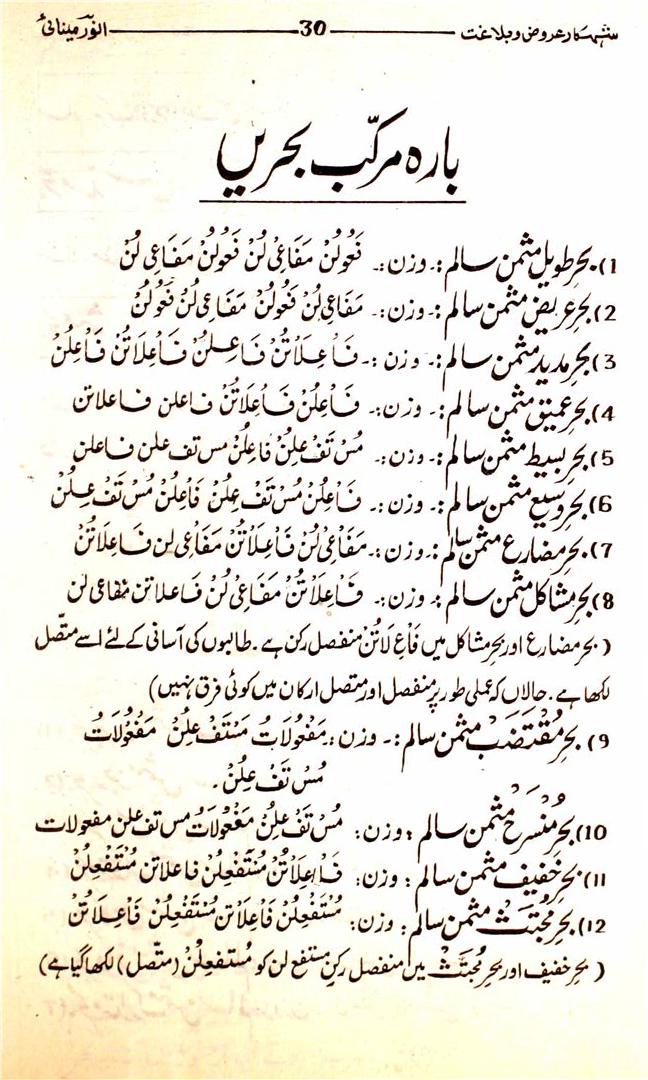 شہکار عروض و بلاغت 30 انور مینائی
بارہ مرکّب بحریں
1) بحرِ طویل مثمن سالم :۔ وزن :۔ فَعُولُنْ مَفَاعِیْ لُنْ فَعُولُنْ مَفَاعِی لُنْ
2) بحرِ عریض مثمن سالم :۔ وزن :۔ مَفَاعِی لُنْ فَعُولُنْ مَفَاعِی لُنْ فَعُولُنْ
3) بحرِ مدید مثمن سالم :۔ وزن :۔ فَاعِلَاتُنْ فَاعِلُنْ فَاْعِلَاتُنْ فَاْعِلُنْ
4) بحرِ عمیق مثمن سالم :۔ وزن :۔ فَاْعِلُنْ فَاْعِلَاتُنْ فاعلن فاعلاتن
5) بحرِ بسیط مثمن سالم :۔ وزن :۔ مُسْ تَفْ عِلُنْ فَاعِلُنْ مس تف علن فاعلن
6) بحرِ وسیع مثمن سالم :۔ وزن :۔ فَاْعِلُنْ مُسْ تَفْ عِلُنْ فَاْعِلُنْ مُسْ تَفْ عِلُنْ
7) بحرِ مضارع مثمن سالم :۔ وزن :۔ مَفَاْعِیْ لُنْ فَاْعِلَاْتُنْ مَفَاْعِی لن فَاعِلَاتُنْ
8) بحرِ مشاکل مثمن سالم :۔ وزن :۔ فَاْعِلَاْتُنْ مَفَاْعِیْ لُنْ فَاعلاتن مفاعی لن
( بحر مضارع اور بحر مشاکل میں فَاْعِ لَاتُنْ منفصل رکن ہے ۔ طالبوں کی آسانی کے لئے اسے متّصل
لکھا ہے ۔ حالاں کہ عملی طور پر منفصل اور متصل ارکان میں کوئی فرق نہیں )
9) بحرِ مُقْتَضَبْ مثمن سالم :۔ وزن :۔ مَفْعُولَاتُ مَسْتَفْ عِلُنْ مَفْعُولَاتُ
مُسْ تَفْ عِلُنْ ۔
10) بحرِ مُنْسَرِحْ مثمن سالم : وزن : مُسْ تَفْ عِلُنْ مَفْعُولَاتُ مس تف علن مفعولات
11) بحرِ خفیف مثمن سالم : وزن : فَاْعِلَاتُنْ مُسْتَفْعِلُنْ فاعلاتن مُسْتَفْعِلُنْ
12) بحرِ مُجتَثْ مثمن سالم : وزن : مُسْتَفْعِلُنْ فَاْعِلَاتن مُسْتَفْعِلُنْ فَاْعِلَاتُنْ
( بحر خفیف اور بحر مُجتَثْ میں منفصل رکن مستفع لن کو مُستفعِلُنْ ( متّصل ) لکھا گیا ہے )